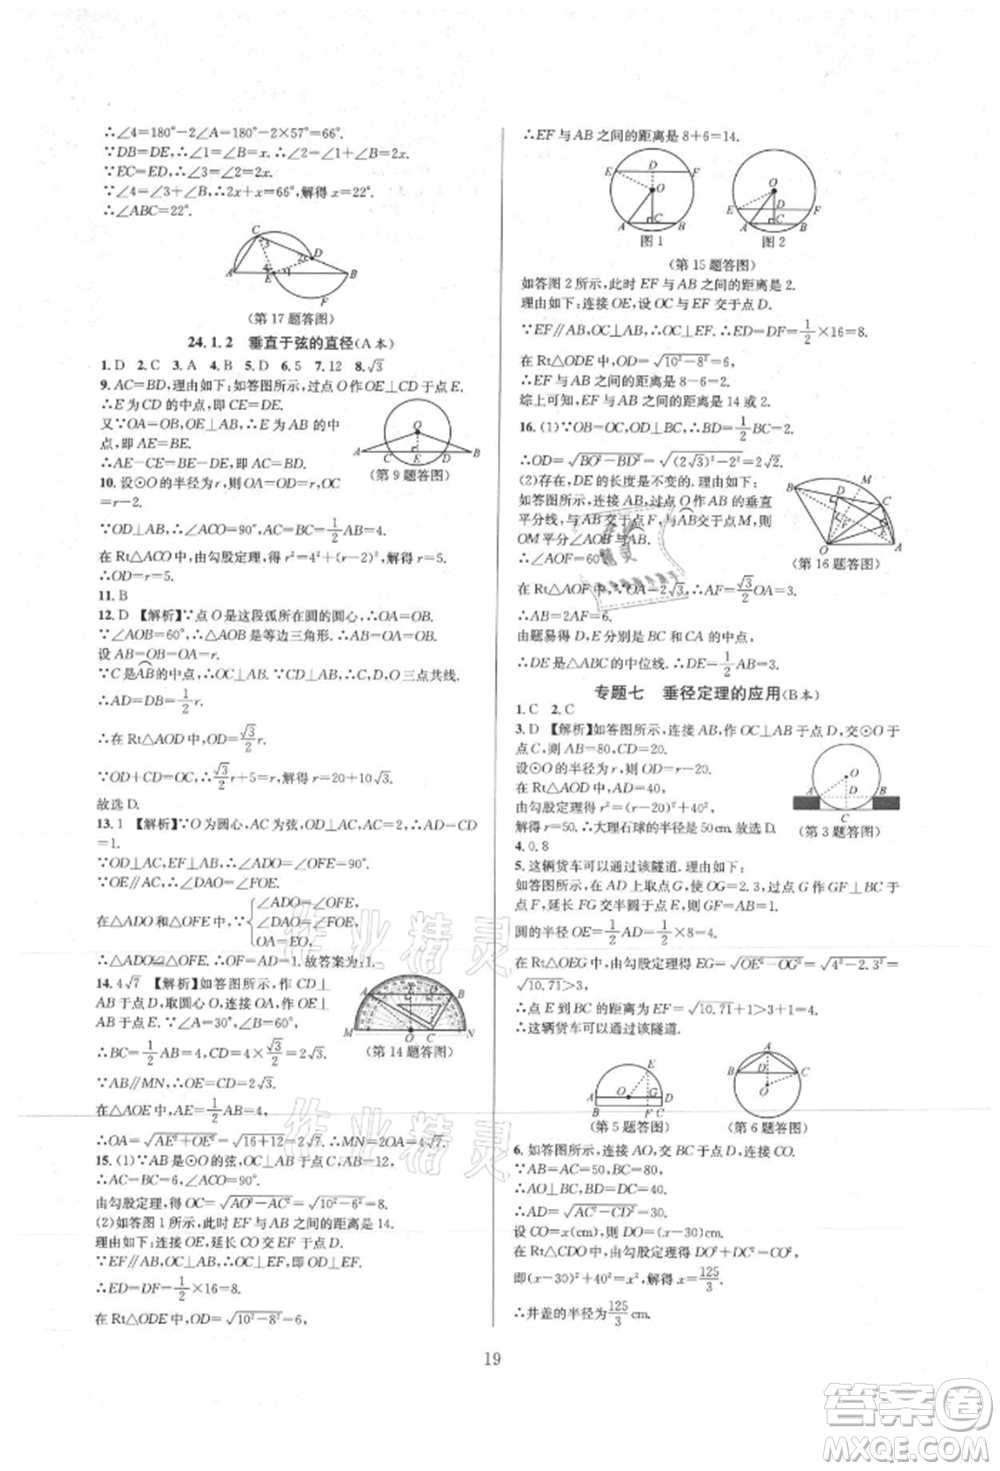 ∴∠4=180°-2∠A=180°-2×57°=66°.
∵DB=DE,∴∠1=∠B=x.∴∠2=∠1+∠B=2x.
∵EC=ED,∴∠3=∠2=2x.
∵∠4=∠3+∠B,∴2x+x=66°,解得 x=22°.
∴∠ABC=22°.
(第 17 题答图)
24.1.2 垂直于弦的直径(A本)
1.D 2.C 3.A 4.B 5.D 6.5 7.12 8.√3
9.AC=BD,理由如下:如答图所示,过点 O 作 OE⊥CD 于点 E.
∴E 为 CD 的中点,即 CE=DE.
又∵OA=OB,OE⊥AB,∴E 为 AB 的中
点,即 AE=BE.
∴AE-CE=BE-DE,即 AC=BD.
(第 9 题答图)
10.设⊙O 的半径为 r,根据题意,得 OC=
r-2.
∵OD⊥AB,∴∠ACO=90°,AC=BC=1/2AB=4.
在 Rt△ACO 中,由勾股定理,得 r²=4²+(r-2)²,解得 r=5.
∴OD=r=5.
11.B
12.D 【解析】∵点 O 是这段弧所在圆的圆心,∴OA=OB.
∵∠AOB=60°,∴△AOB 是等边三角形.
设 AB=OB=OA=r.
∵C 是AB的中点,∴OC⊥AB.∴C,D,O 三点共线.
∴AD=DB=1/2 r.
∴在 Rt△AOD 中,OD=√3/2 r.
∵OD+CD=OC,∴√3/2 r+5=r,解得 r=20+10√3.
故选 D.
13.1 【解析】∵O 为圆心,AC 为弦,OD⊥AC,∴AD=CD
=1.
∵OD⊥AC,EF⊥AB,∴∠ADO=∠OFE=90°.
∵OE∥AC,∴∠DAO=∠FOE.
在△ADO 和△OFE 中,∵{∠ADO=∠OFE, ∠DAO=∠FOE, OA=EO,
∴△ADO≌△OFE.∴OF=AD=1.故答案为:1.
14.4√7 【解析】如答图所示,作 CD⊥
AB 于点 D,取圆心 O,连接 OA,作 OE⊥
AB 于点 E.∵∠A=30°,∠ABC=90°,
∴BC=1/2AB=4,∴OE=CD=4×√3/2=2√3.
(第 14 题答图)
∵AB∥MN,∴OE=CD=2√3.
在△AOE 中,AE=1/2AB=4,
∴OA=√AE²+OE²=√16+12=2√7.∴MN=2OA=4√7.
15.(1)∵AB 是⊙O 的弦,OC⊥AB 于点 C,AB=12,
∴AC=BC=6,∠ACO=90°.
由勾股定理,得 OC=√AO²-AC²=√10²-6²=8.
(2)如答图 1 所示,此时 EF 与 AB 之间的距离是 14.
理由如下:连接 OE,延长 CO 交 EF 于点 D.
∵EF∥AB,OC⊥AB,∴OD⊥EF.
∴ED=DF=1/2×16=8.
在 Rt△ODE 中,OD=√10²-8²=6,
∴EF 与 AB 之间的距离是 8+6=14.
图 1 图 2
(第 15 题答图)
如答图 2 所示,此时 EF 与 AB 之间的距离是 2.
理由如下:连接 OE,设 OC 与 EF 交于点 D.
∵EF∥AB,OC⊥AB,∴OD⊥EF.∴ED=DF=1/2×16=8.
在 Rt△ODE 中,OD=√10²-8²=6,
∴EF 与 AB 之间的距离是 8-6=2.
综上可知,EF 与 AB 之间的距离是 14 或 2.
16.(1)∵OB=OC,OD⊥BC,∴BD=1/2BC=2.
∴OD=√BO²-BD²=√(2√3)²-2²=2√2.
(2)存在,DE 的长度是不变的.理由:
如答图所示,连接 AB,过点 O 作 AB 的垂直
平分线,与 AB 交于点 F,与AB交于点 M,则
OM 平分∠AOB 与AB.
∴∠AOF=60°.
(第 16 题答图)
在 Rt△AOF 中,∵OA=2√3,∴AF=√3/2OA=3.
∴AB=2AF=6.
由题易得 D,E 分别是 BC 和 CA 的中点,
∴DE 是△ABC 的中位线.∴DE=1/2AB=3.
专题七 垂径定理的应用(B本)
1.C 2.C
3.D 【解析】如答图所示,连接 AB,作 OC⊥AB 于点 D,交⊙O 于
点 C,则 AB=80,CD=20.
设⊙O 的半径为 r,则 OD=r-20.
在 Rt△AOD 中,AD=1/2AB=40,
由勾股定理得 r²=(r-20)²+40²,
解得 r=50.∴大理石球的半径是 50 cm.故选 D.
(第 3 题答图)
4.0.8
5.这辆货车可以通过该隧道.理由如下:
如答图所示,在 AD 上取点 G,使 OG=2.3,过点 G 作 GF⊥BC 于
点 F,延长 FG 交半圆于点 E,则 GF=AB=3,
圆的半径 OE=1/2AD=1/2×8=4.
在 Rt△OEG 中,由勾股定理得 EG=√OE²-OG²=√4²-2.3²=
√10.71>3.
∴点 E 到 BC 的距离为 EF=√10.71+3>3+1=4.
∴这辆货车可以通过该隧道.
(第 5 题答图) (第 6 题答图)
6.如答图所示,连接 AO,交 BC 于点 D,连接 CO.
∵AB=AC=50,BC=80,
∴AO⊥BC,CD=1/2BC=40.
∴AD=√AC²-CD²=30.
设 CO=x cm,则 DO=(x-30)cm.
在 Rt△CDO 中,由勾股定理得 DO²+DC²=CO²,
即(x-30)²+40²=x²,解得 x=125/3.
∴井盖的半径为125/3 cm.
19
作业精灵
作业精灵
答案卷
MXQE.COM